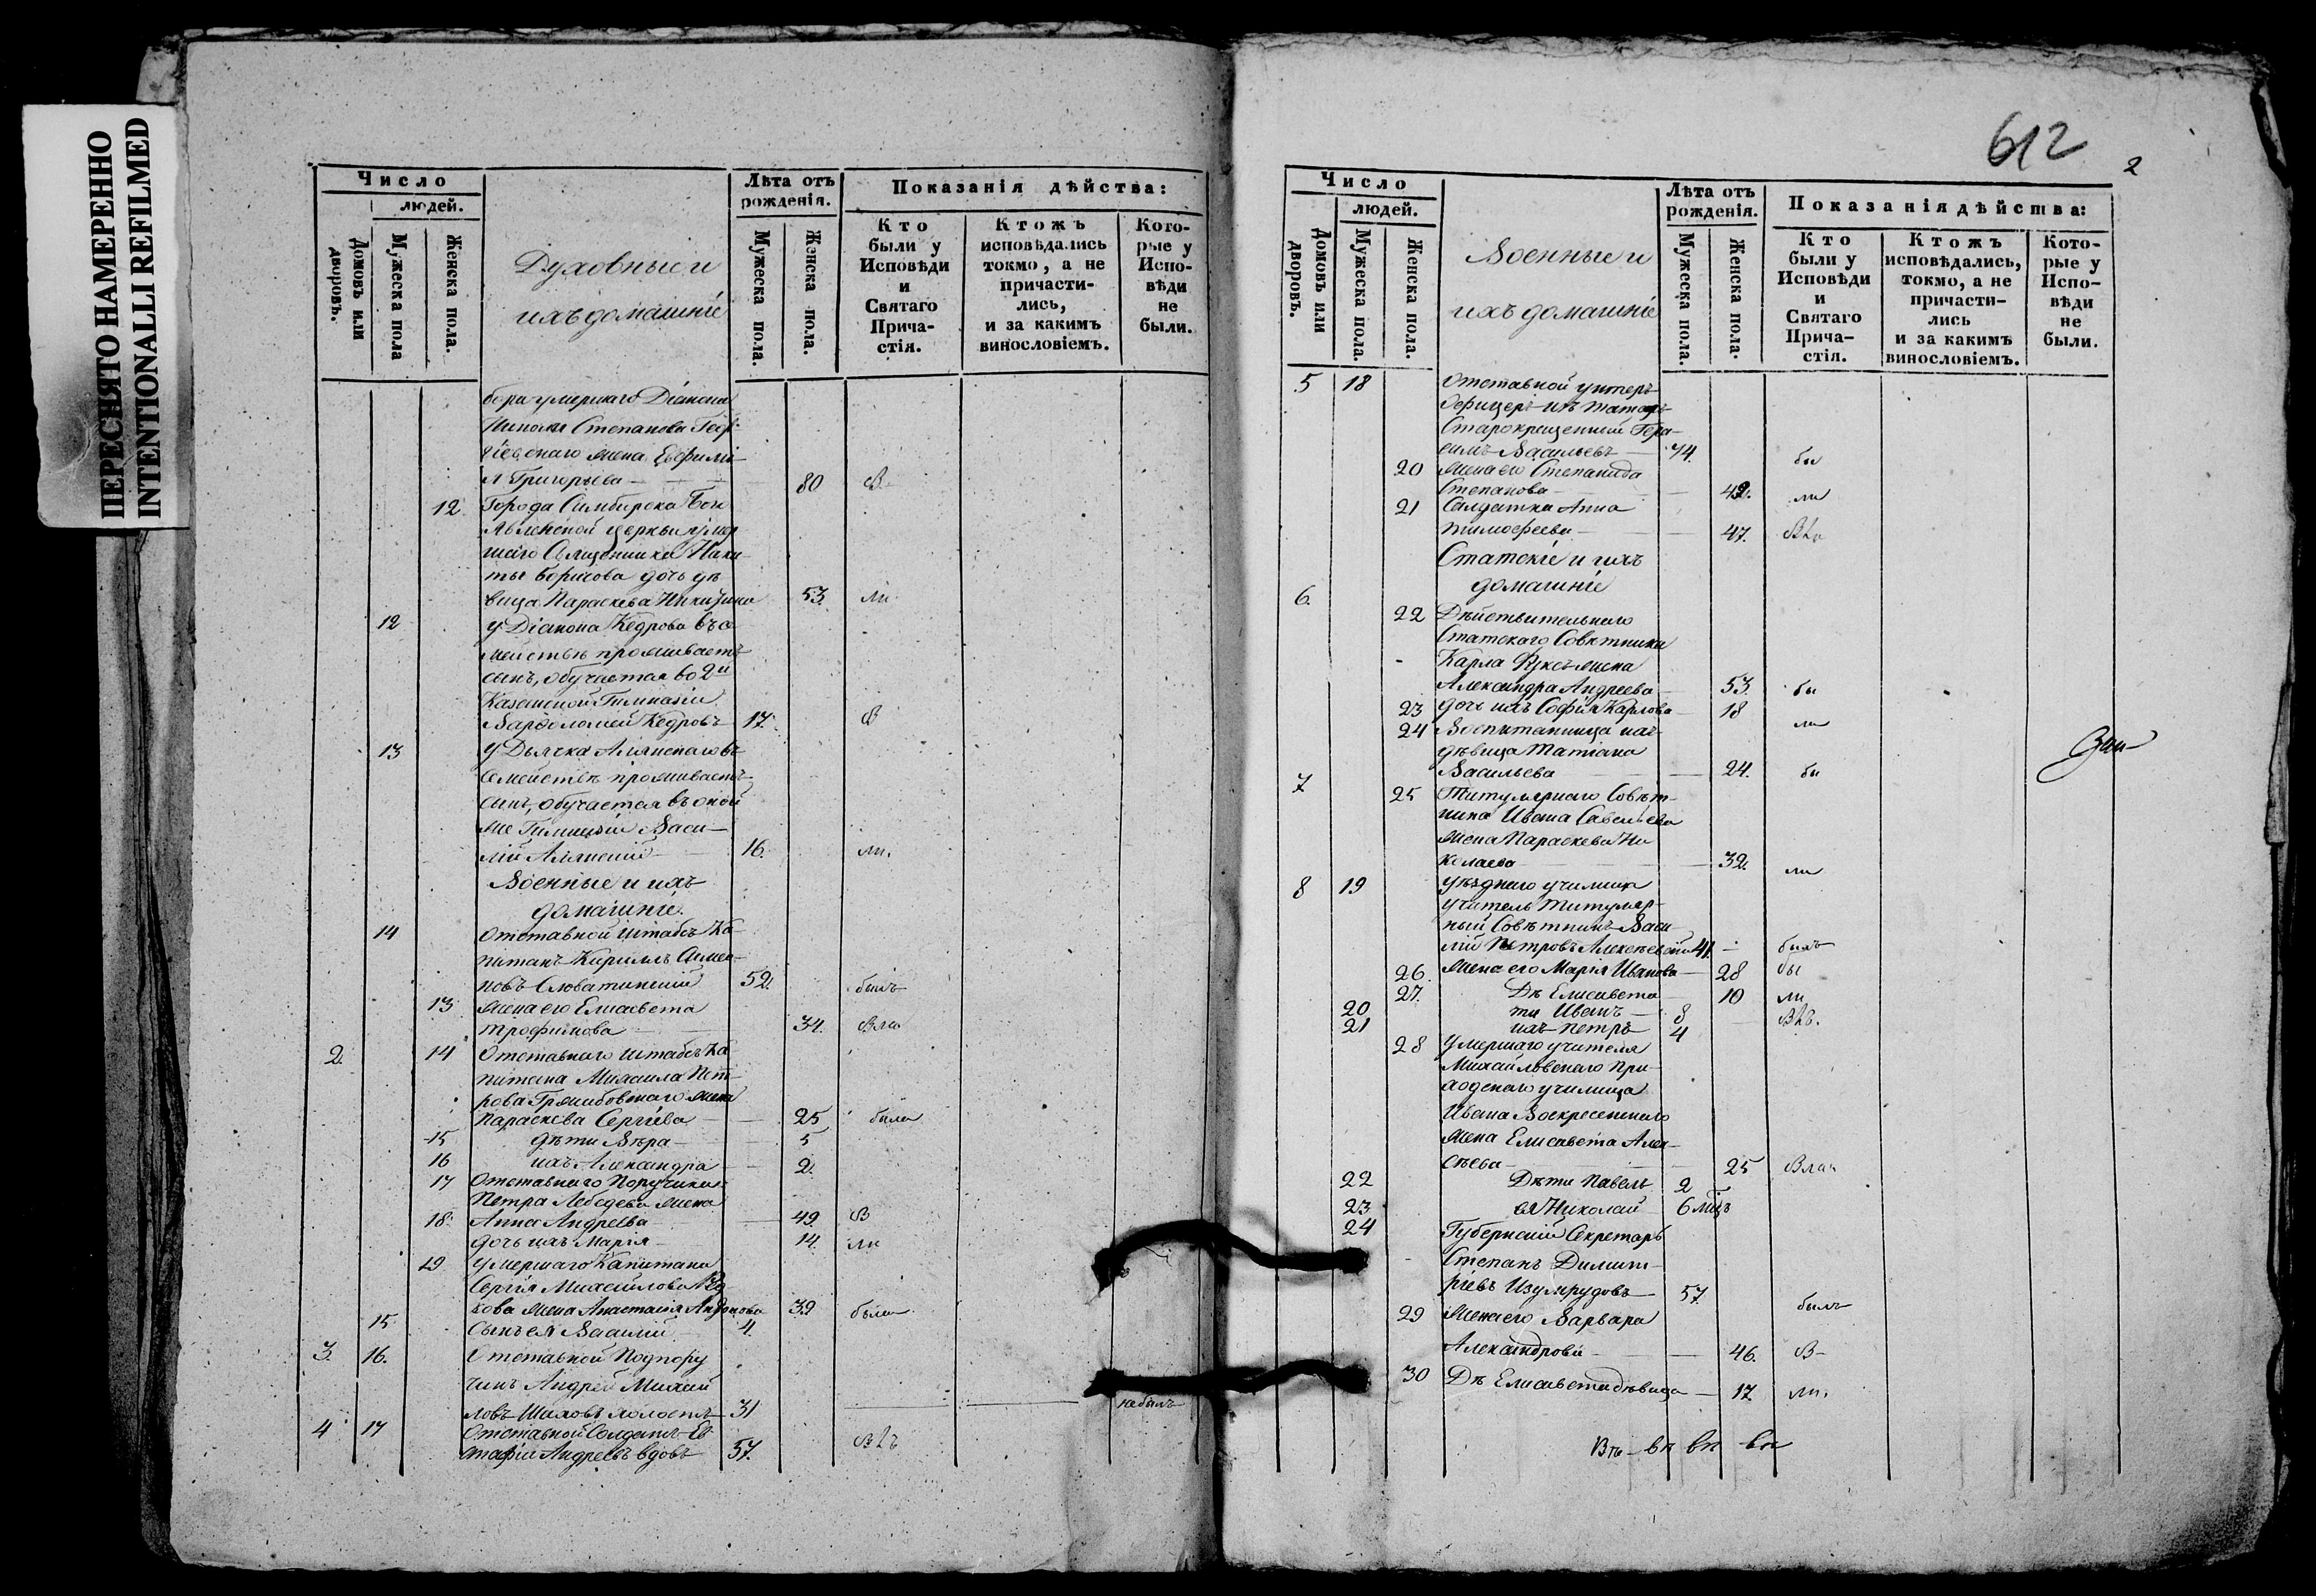 ПЕРЕСНЯТО НАМЕРЕННО
INTENTIONALLI REFILMED
Число
людей.
Домовъ или дворовъ.
Мужеска пола
Женска пола.
Духовные и
ихъ домашніе
Лѣта отъ рожденія.
Мужеска пола.
Женска пола.
Показанія дѣйства:
Кто были у Исповѣди и Святаго Прича-стія.
Ктожъ исповѣдались токмо, а не причасти-лись, и за какимъ винословіемъ.
Кото-рые у Испо-вѣди не были.
бора умершаго Діакона
Николая Степанова Геор-
гіевскаго жена Евфимі-
я Григорьева 80 в
12 Города Симбирска Бого
явленской церкви умер
шаго Священника Ники
ты Борисова дочь дѣ
вица Параскева Никитина 53. ли
12 у Діакона Кедрова въ се
мействѣ проживаетъ
сынъ, обучается во 2й
Казанской Гимназіи
Варѳоломей Кедровъ 17. в
13 у Дьячка въ
Семействѣ проживаетъ
сынъ, обучается въ оной
же Гимназіи Васи-
лій 16. ли.
Военные и ихъ
домашніе.
14 Отставной штабсъ Ка
питанъ Кириллъ Симео-
новъ Словатинскій 52. былъ
13 Жена его Елисавета
Трофимова 34.
2. 14 Отставнаго штабсъ Ка
питана Михаила Пет-
рова жена
Параскева Сергіева 25 была
15 дѣти Вѣра 5
16 ихъ Александра 2.
17 Отставнаго Поручика
Петра Лебедева жена
18. Анна Андреева 49 В
дочь ихъ Марія 14. ли
19 умершаго Капитана
Сергія Михайлова
кова жена Анастасія 39 была
15 Сынъ ея Василій 4.
3. 16. Отставной Подпору
чикъ Андрей Михай
ловъ Шаховъ холостъ 31 небылъ
4 17 Отставной Солдатъ Ев
стафій Андреевъ вдовъ 57.
612
2
Число
людей.
Домовъ или дворовъ.
Мужеска пола.
Женска пола.
Военные и
ихъ домашніе
Лѣта отъ рожденія.
Мужеска пола.
Женска пола.
Показанія дѣйства:
Кто были у Исповѣди и Святаго Прича-стія.
Ктожъ исповѣдались, токмо, а не причасти-лись и за какимъ винословіемъ.
Кото-рые у Испо-вѣди не были.
5 18 Отставной унтеръ
Офицеръ изъ татаръ
Старокрещенный Гера-
симъ Васильевъ 74. бы
20 Жена его Степанида
Степанова 42. ли
21 Салдатка Анна
Тимофеева 47.
Статскіе и ихъ
домашніе
6. 22 Дѣйствительнаго
Статскаго Совѣтника
Карла жена
Александра Андреева 53. бы
23 дочь ихъ Софія Карлова 18
24 Воспитанница ихъ ли
дѣвица Татіана
Васильева 24. бы
7 25 Титулярнаго Совѣт-
ника Ивана Савельева
жена Параскева Ни
колаева 32. ли
8 19 уѣзднаго училища
учитель Титуляр-
ный Совѣтникъ Васи
лій Петровъ 41. былъ
26. Жена его Марія Иванова 28 бы
27. Дѣ Елисавета 10 ли
20 ти Иванъ 8
21 ихъ Петръ 4
28 умершаго учителя
Михайловскаго При-
ходскаго училища
Ивана Воскресенскаго
жена Елисавета Алек-
сѣева 25
22 Дѣти Павелъ 2
23 ея Николай 6 мцъ
24 Губернскій Секретарь
Степанъ Димит-
ріевъ Изумрудовъ 57. былъ
29 Жена его Варвара
Александрова 46. В
30 Дѣ Елисавета дѣвица 17 ли.